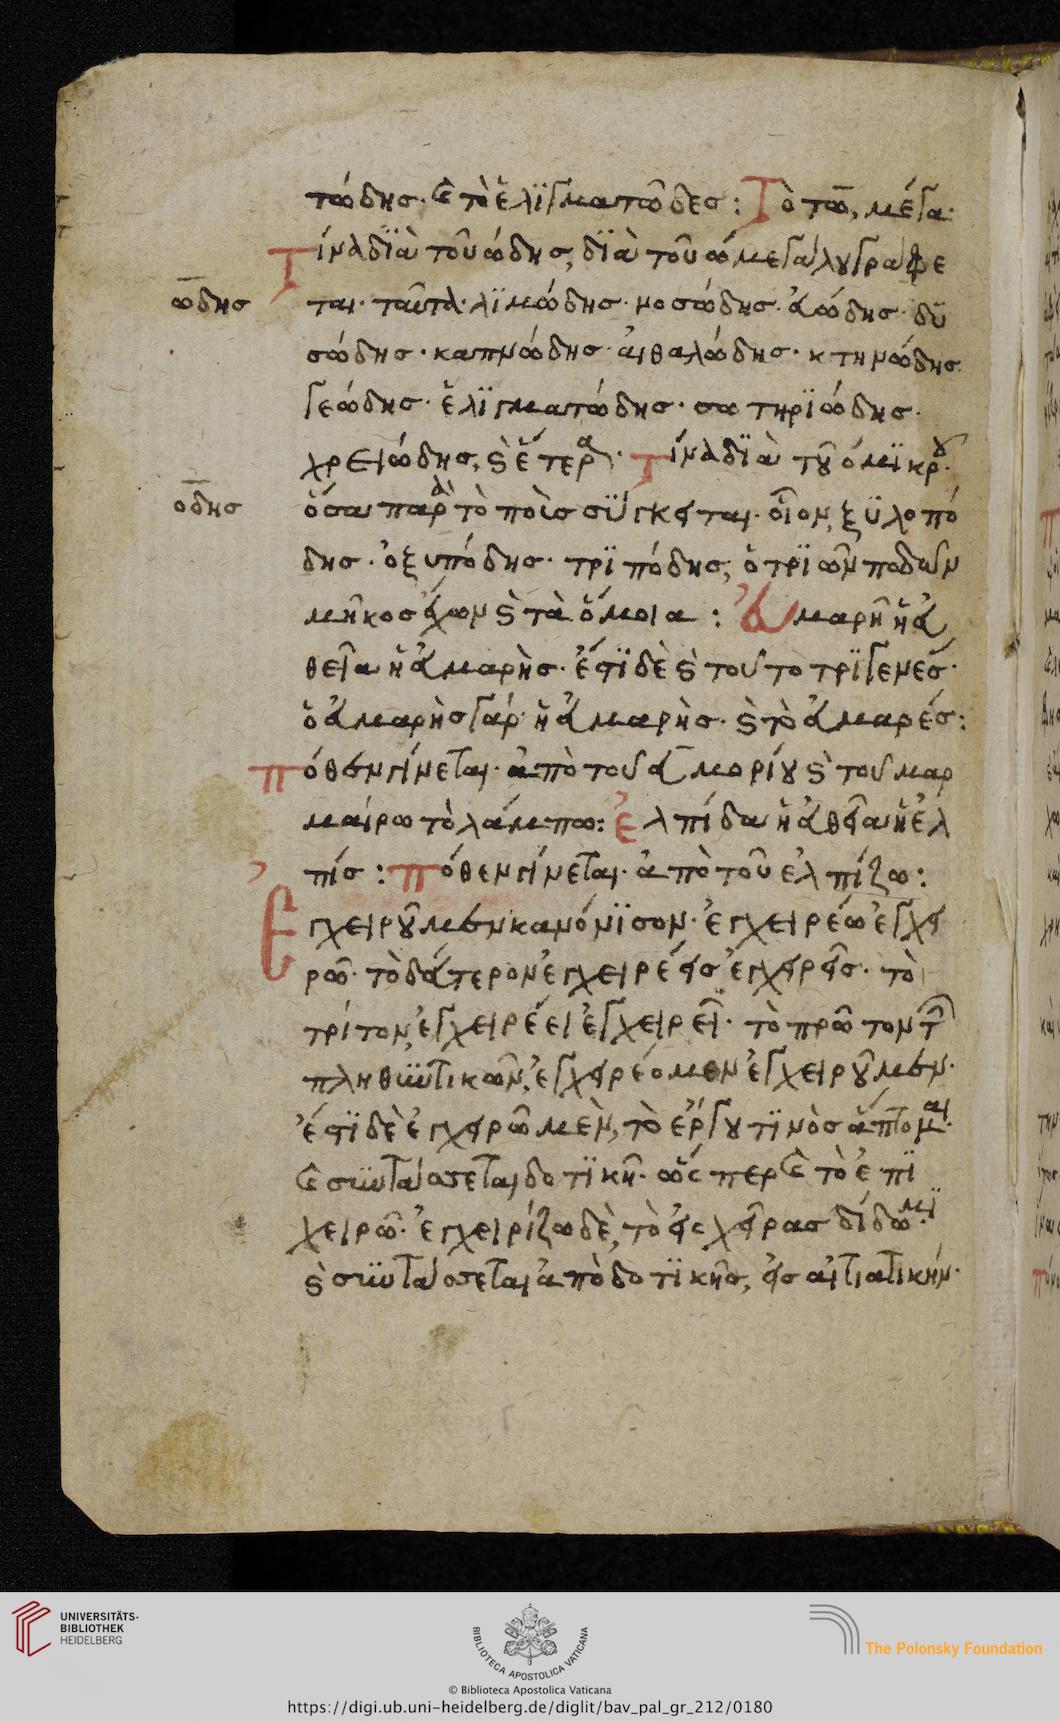 τώδης· καὶ τὸ ἑλϊγματῶδες: Τὸ τω, μέγα·
Τίνα δϊὰ τοῦ ώδης, δϊὰ τοῦ ω μεγάλου γράφε
ω̅δης
ται· ταῦτα· λϊμώδης· νοσώδης· ἀώδης· δυ
σώδης· καπνώδης· αἰθαλώδης· κτηνώδης
γεώδης· ἑλϊγματώδης· σωτηρϊώδης·
χρειώδης, καὶ ἕτερα· Τίνα δϊὰ τοῦ ο μϊκροῦ·
ο̅δης
ὅσα παρὰ τὸ ποῦς σύγκειται· οἷον, ξϋλοπό
δης· ὀξυπόδης· τρϊπόδης, ὁ τρϊῶν ποδῶν
μῆκος ἔχων καὶ τὰ ὅμοια: Ἀμαρῆ ἡ ἀ
θεῖα ἡ ἀμαρὴς· ἔστϊ δὲ καὶ τοῦτο τρϊγενές·
ὁ ἀμαρὴς γάρ· ἡ ἀμαρὴς· καὶ τὸ ἀμαρές:
πόθεν γίνεται· ἀπὸ τοῦ α μορίου καὶ τοῦ μαρ
μαίρω τὸ λάμπω: Ἐλπίδα ἡ ἀθεῖα ἡ ἐλ
πίς: Πόθεν γίνεται· ἀπὸ τοῦ ἐλπίζω:
Ἐγχειροῦμεν κανόνϊσον· ἐγχειρέω ἐγχει
ρῶ· τὸ δάτερον ἐγχειρέεις ἐγχειρεῖς· τὸ
τρίτον, ἐγχειρέει ἐγχειρεῖ· τὸ πρῶτον τῶν
πληθϋντικῶν, ἐγχειρέομεν ἐγχειροῦμεν·
ἔστϊ δὲ ἐγχειρῶ μὲν, τὸ ἔργου τϊνὸς ἅπτομαι·
καὶ συντάσσεται δοτϊκῇ· ὥσπερ καὶ τὸ ἐπϊ
χειρῶ· ἐγχειρίζω δὲ, τὸ εἰς χεῖρας δίδωμϊ·
καὶ συντάσσεται ἀπὸ δοτϊκῆς, εἰς αἰτιατικήν·
UNIVERSITÄTS-
BIBLIOTHEK
HEIDELBERG
BIBLIOTECA APOSTOLICA VATICANA
The Polonsky Foundation
© Biblioteca Apostolica Vaticana
https://digi.ub.uni-heidelberg.de/diglit/bav_pal_gr_212/0180